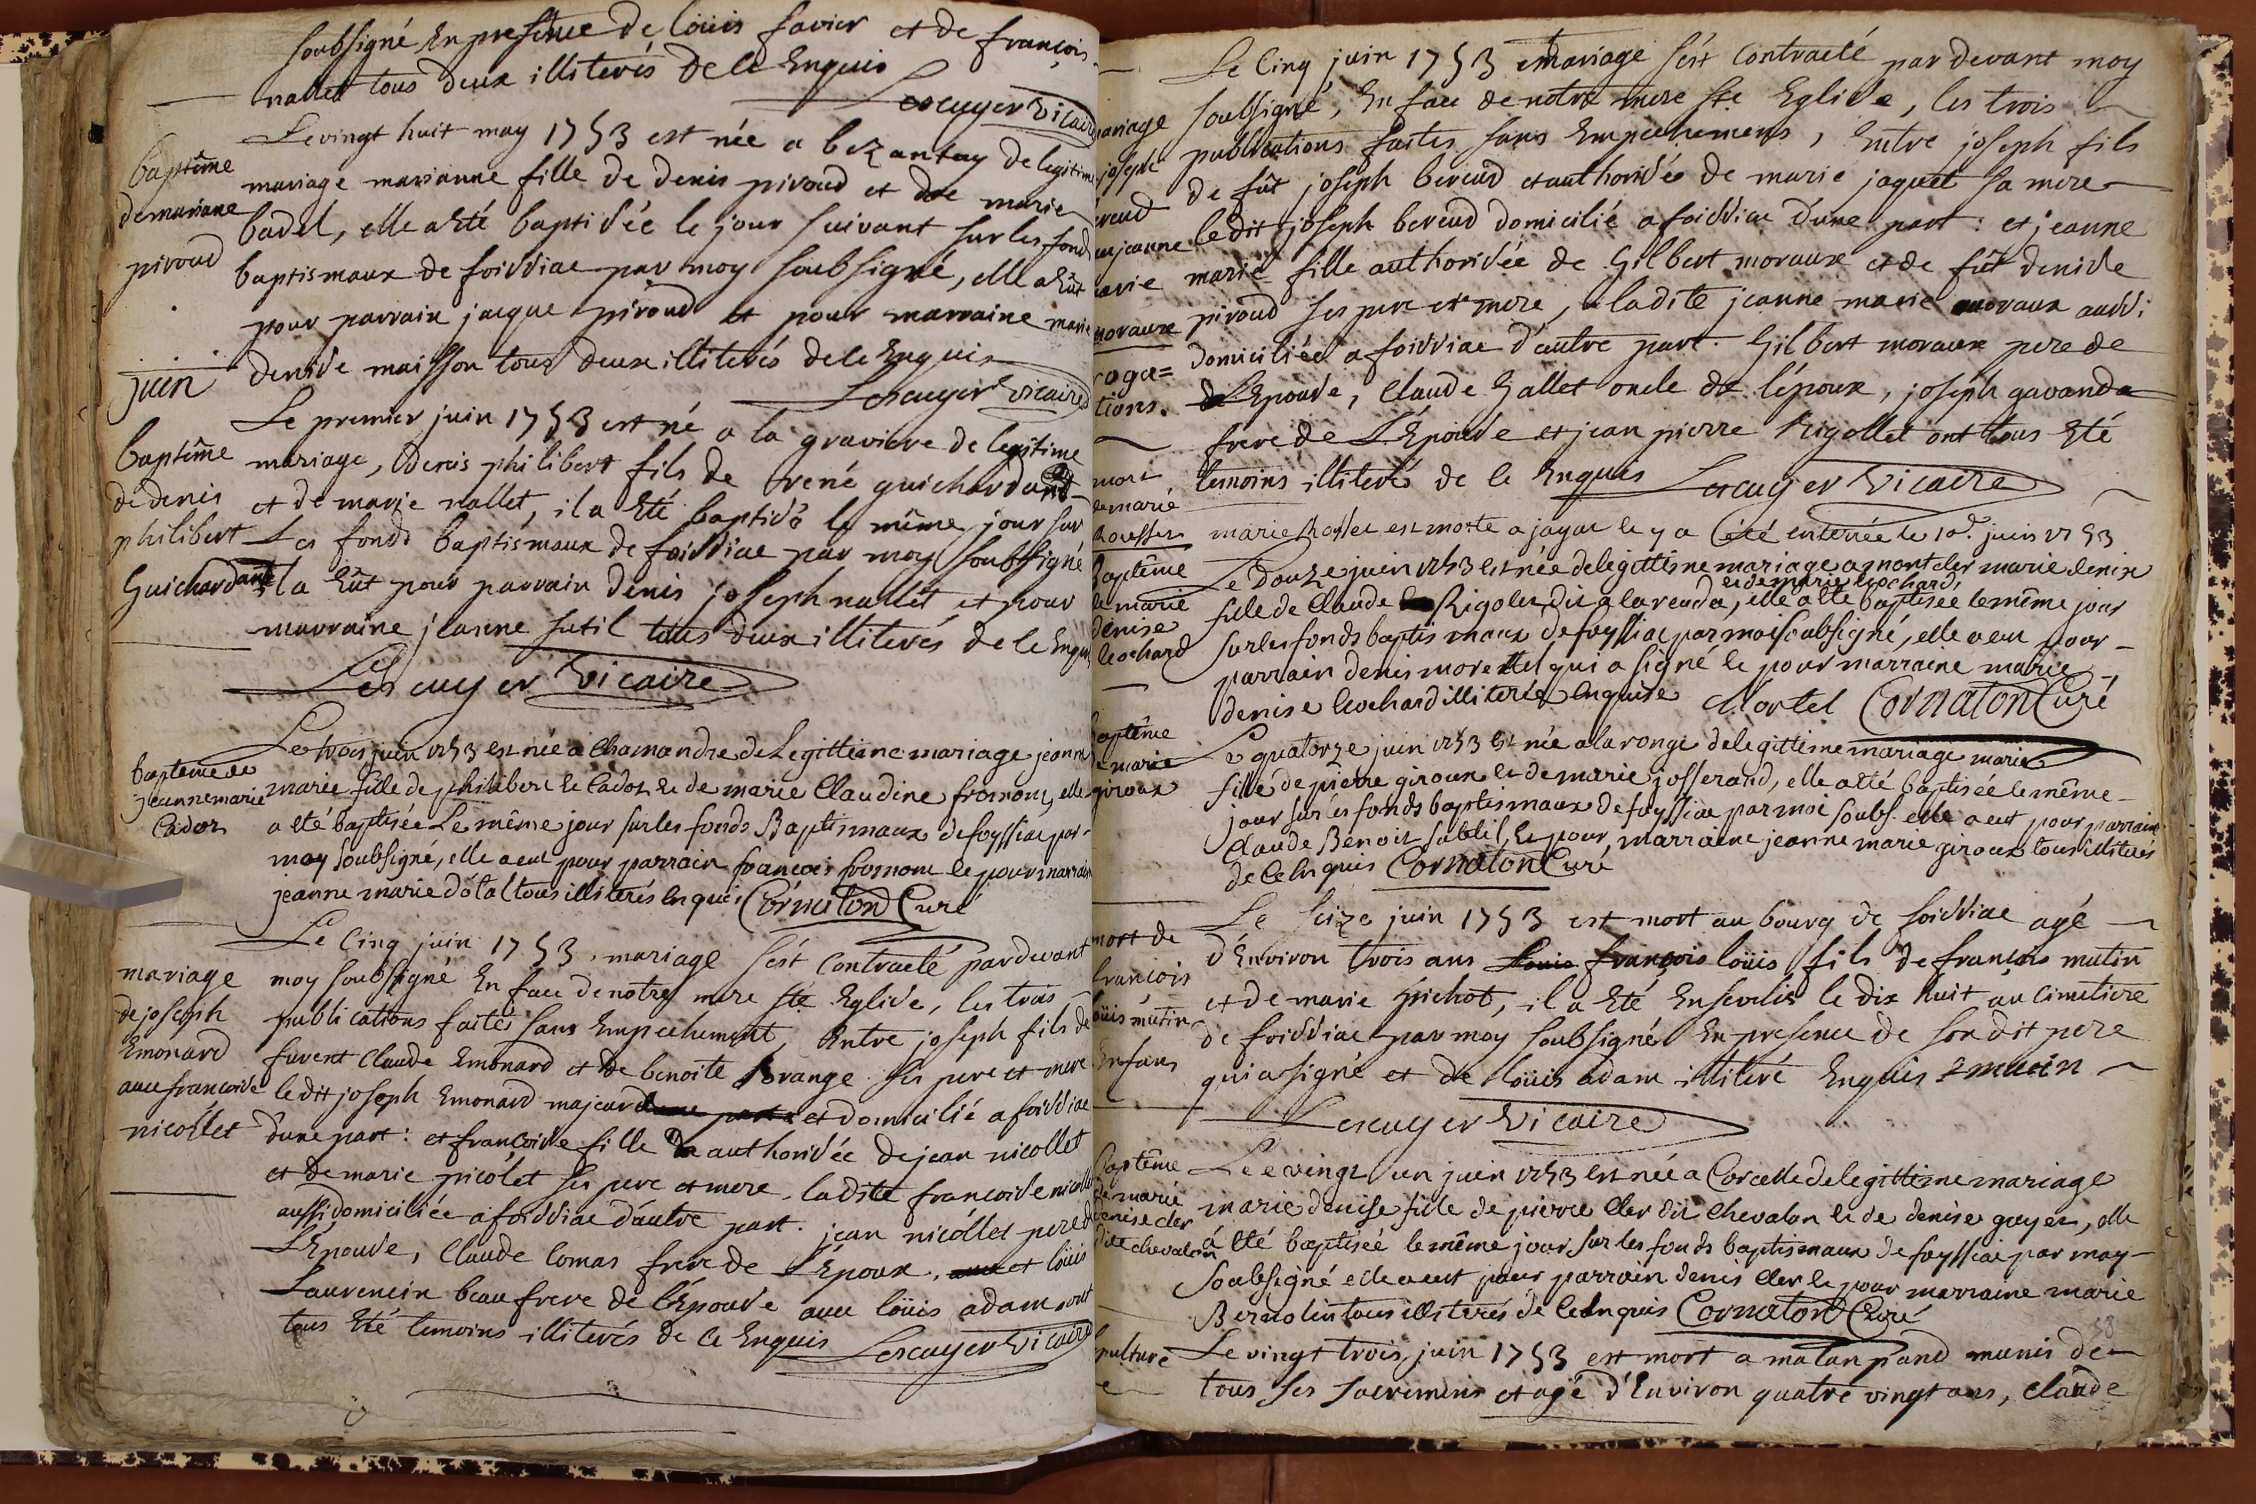 soubsigné En presence de loüis favier et de françois
nallet tous deux illiterés de ce Enquis
Lescuyer vicaire
baptême
de mariane
piroud
Le vingt huit may 1753 est née a bezantay de legitime
mariage marianne fille de denis piroud et de marie
badel, elle a été baptisée le jour suivant sur les fonds
baptismaux de foissiac par moy soubsigné, elle a Eût
pour parrain jacque piroud et pour marraine marie
denise maisson tous deux illiterés de ce Enquis
Lescuyer vicaire
juin
baptême
de denis
philibert
Guichardant
Le premier juin 1753 est né a la graviere de legitime
mariage, denis philibert fils de rené guichardant
et de marie nallet, il a Eté baptisé le même jour sur
Les fonds baptismaux de foissiac par moy soubsigné
il a Eût pour parrain denis joseph nallet et pour
marraine jeanne sutil tous deux illiterés de ce Enquis
Lescuyer vicaire
baptême de
jeanne marie
Cador
Le trois juin 1753 est née a Chamandre de Legittime mariage jeanne
marie fille de philibert Cador et de marie Claudine fromont, elle
a été baptisée Le même jour sur les fonds Baptismaux de foyssiac par
moy soubsigné, elle a eut pour parrain françois fromont et pour marraine
jeanne marie dótal tous illiterés enquis Cornaton Curé
mariage
de joseph
Emonard
avec francoise
nicollet
Le Cinq juin 1753 mariage s'ést contracté pardevant
moy soubsigné En face de notre mere ste Eglise, les trois
publications faites sans Empechement, Entre joseph fils de
furent claude Emonard et de benoite Borange ses pere et mere
le dit joseph Emonard majeur et domicilié a foissiac
d'une part: et francoise fille authorisée de jean nicollet
et de marie picolet ses pere et mere, ladite francoise nicollet
aussi domiciliée a foissiac d'autre part. jean nicóllet pere de
L'Epouse, Claude Comas frere de L'Epoux, et loüis
Laurencin beau frere de l'Epouse avec loüis adam ont
tous Eté temoins illiterés de ce Enquis
Lescuyer vicaire
mariage
joseph
bereud
avec jeanne
marie
moraux
rogations.
Le Cinq juin 1753 mariage s'ést contracté par devant moy
soubsigné, En face de notre mere ste Eglise, les trois
publications faites sans Empechemens, Entre joseph fils
de fût joseph bereud et authorisée de marie jaquet sa mere
le dit joseph bereud domicilié a foissiac d'une part: et jeanne
marie fille authorisée de Gilbert moraux et de fût denise
piroud ses pere et mere, ladite jeanne marie moraux aussi
domiciliée a foissiac d'autre part. Gilbert moraux pere de
L'Epouse, Claude Gallet oncle de l'époux, joseph gavanda
frere de L'Epouse et jean pierre Rigollet ont tous Eté
temoins illiterés de ce Enquis Lescuyer vicaire
mort
de marie
Rousset
marie Rosset est morte a jayac le y a été enterrée le 10e juin 1753
baptême
de marie
denise
Cochard
Le douze juin 1753 est née de legittime mariage a montcler marie denise
fille de Claude Rigolet dit a la renda, et de marie Cochard, elle a été baptisée le même jour
sur les fonds baptismaux de foyssiac par moi soubsigné, elle a eu pour
parrain denis morestel qui a signé et pour marraine marie
denise Cochard illiterée enquise Mortel Cornaton Curé
baptême
de marie
giroux
Le quatorze juin 1753 est née a la ronge de legittime mariage marie
fille de pierre giroux et de marie josserand, elle a été baptisée le même
jour sur les fonds baptismaux de foyssiac par moi soubs. elle a eut pour parrain
Claude Benoit Subtil, et pour marraine jeanne marie giroux tous illiterés
de ce Enquis Cornaton Curé
mort de
françois
loüis mutin
Enfans
Le seize juin 1753 est mort au bourg de foissiac agé
d'Environ trois ans françois loüis fils de françois mutin
et de marie pichot, il a Eté Enseveli le dix huit au Cimetiere
de foissiac par moy soubsigné En presence de son dit pere
qui a signé et de loüis adam illiteré Enquis mutin
Lescuyer vicaire
baptême
de marie
denise cler
dite chevalon
Le vingt un juin 1753 est née a Corcelle de legittime mariage
marie denise fille de pierre Cler dit Chevalon et de denise goyet, elle
a été baptisée le même jour sur les fonds baptismaux de foyssiac par moy
soubsigné elle a eut pour parrain denis Cler et pour marraine marie
Bernolin tous illiterés de ce Enquis Cornaton Curé
58
sepulture
de
Le vingt trois juin 1753 est mort a malanpand munis de
tous ses sacremens et agé d'Environ quatre vingt ans, claude